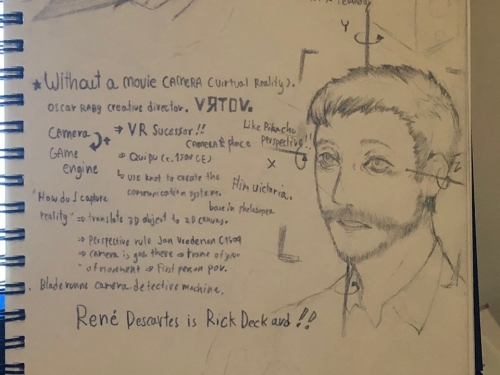 Y
★ Without a movie CAMERA (Virtual Reality).
OSCAR RABY creative director. VЯTOV.
Camera + ⇒ VR Sucessor!!
GAME
engine
Like Pikachu
camera & place perspective!!
⇒ Quipu (c. 1500 CE)
↳ use knot to create the
communication system.
X
Z
"How do I capture
reality" ⇒ translate 3D object to 2D canvas.
⇒ Perspective rule Jan
⇒ camera is gas there ⇒ frame of your
" of movement ⇒ First person pov.
. Bladerunne camera detective machine.
René Descartes is Rick Deckard!!